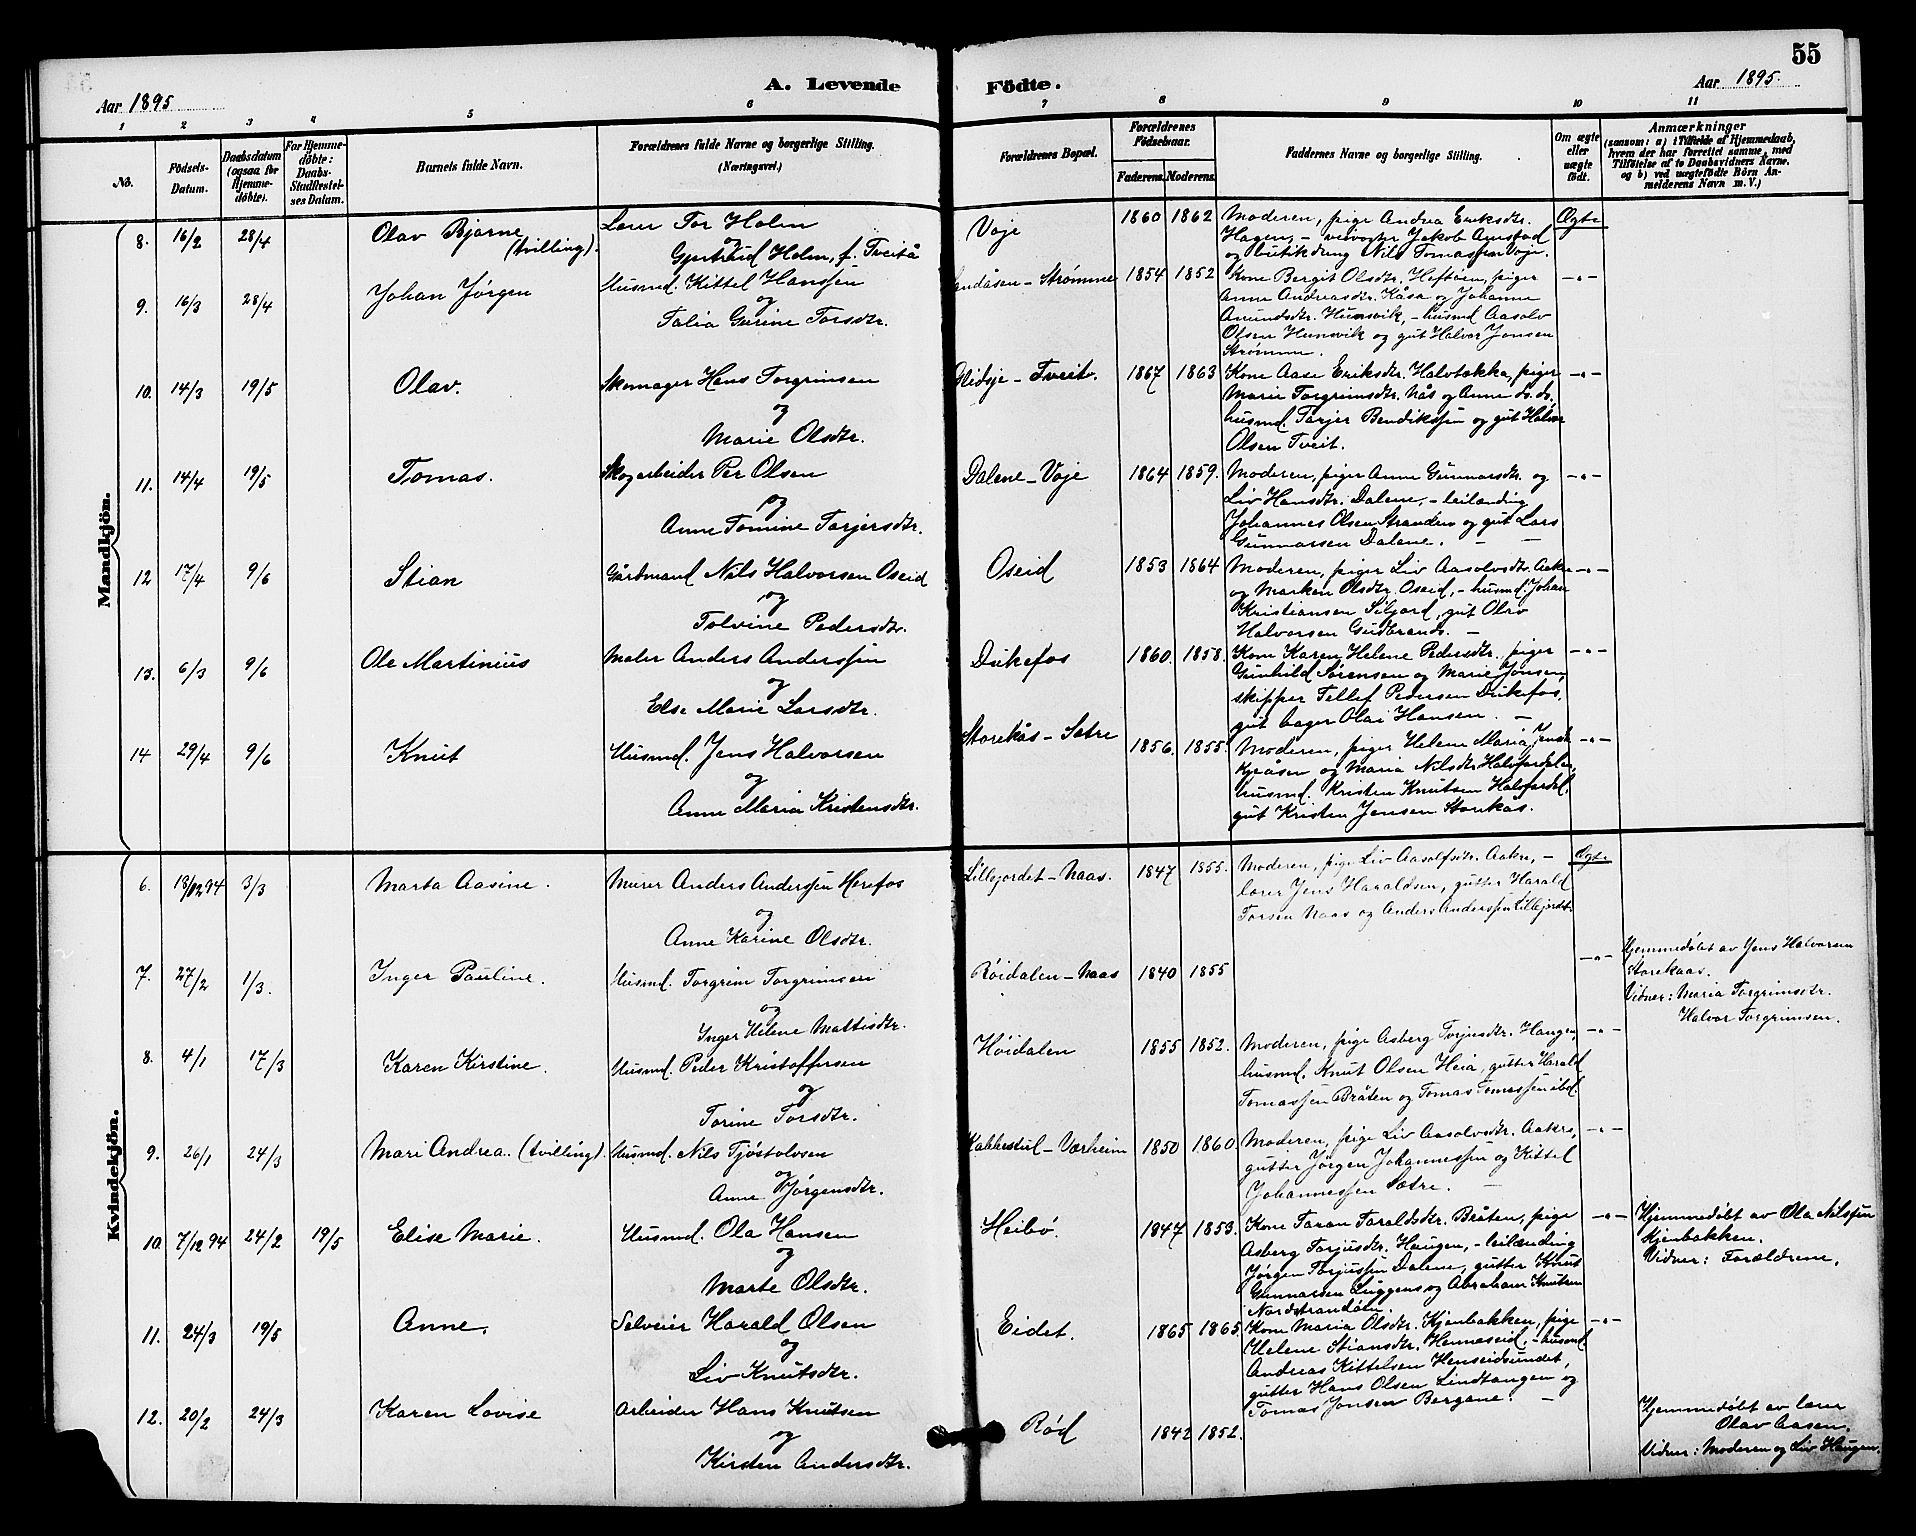 55
Aar 1895
A. Levende Födte.
Aar 1895.
1 2 3 4 5 6 7 8 9 10 11
No.
Födsels-Datum.
Daabsdatum (ogsaa for Hjemmedøbte).
For Hjemmedøbte: Daabs-Stadfæstelses Datum.
Barnets fulde Navn.
Forældrenes fulde Navne og borgerlige Stilling.
(Næringsvei.)
Forældrenes Bopæl.
Forældrenes Födselsaar.
Faderens. Moderens.
Faddernes Navne og borgerlige Stilling.
Om ægte eller uægte født.
Anmærkninger
(saasom: a) i Tilfælde af Hjemmedaab, hvem der har forrettet samme, med Tilføielse af to Daabsvidners Navne, og b) ved uægtefødte Börn Anmelderens Navn m. V.)
Mandkjön.
8. 16/2 28/4 Olav Bjarne (tvilling). Lærer Tor Holm og Gjertrud Holm, f. Tveitå Voje 1860 1862 Moderen, pige Andrea Eriksdtr. Ægte
Hagen, – veivogter Jakob Amstad
og butikdreng Nils Tomassen Voje.
9. 16/3 28/4 Johan Jørgen Husmd. Kittel Hanssen og Talia Gurine Torsdtr. Sandåsen – Strømme 1854 1852 Kone Bergit Olsdtr. Heftøen, piger –"–
Anne Andreasdtr. Kåsa og Johanne
Anundsdtr. Hunsvik, – husmd Aasolv
Olsen Hunsvik og gut Halvor Jonsen
Strømme.
10. 14/3 19/5 Olav. Skomager Hans Torgrimsen og Marie Olsdtr. Glidsje – Tveit. 1867 1863 Kone Aase Eriksdtr. Halvtøkka, piger –"–
Marie Torgrimsdtr. Nås og Anne do. do.
husmd. Tarjer Bendikssen og gut Halvor
Olsen Tveit.
11. 14/4 19/5 Tomas. Skogarbeider Per Olsen og Anne Tomine Tarjersdtr. Dalene – Voje 1864 1859. Moderen, piger Anne Gunnarsdtr. og –"–
Liv Hansdtr. Dalene, – leilænding
Johannes Olsen Stranden og gut Lars
Gunnarsen Dalene. –
12 17/4 9/6 Stian Gårdmand Nils Halvorsen Oseid og Tolvine Pedersdtr. Oseid 1853 1864 Moderen, piger Liv Aasolvsdtr. Aakre –"–
og Marken Olsdtr. Oseid, – husmd. Johan
Kristiansen Siljord, gut Olav
Halvorsen Gudbrands. –
13. 6/3 9/6 Ole Martinius Maler Anders Anderssen og Else Marie Larsdtr. Dukefos 1860. 1858. Kone Karen Helene Pedersdtr. piger –"–
Gunhild Sørensen og Marie Jensen,
skipper Tellef Pedersen Dukefos,
gut Aager Olai Hansen. –
14 29/4 9/6 Knut Husmd. Jens Halvorsen og Anne Maria Kristensdtr. Storekås – Sætre 1856. 1855. Moderen, piger Helene Maria Jensdr. –"–
Kjeåsen og Maria Nilsdtr. Halvfardalen,
husmd. Kristen Knutsen Halvfardal,
gut Kristen Jensen Storekås.
Kvindekjön.
6. 18/12 94 3/3 Marta Aasine. Murer Anders Anderssen Herefos og Anne Karine Olsdtr. Lillejordet – Naas. 1847 1855. Moderen, pige Liv Aasolfsdtr. Aakre, – Ægte
lærer Jens Haraldsen, gutter Harald
Torsen Naas og Anders Anderssen Lillejordet.
7. 27/2 1/3. Inger Pauline. Husmd. Torgrim Torgrimsen og Inger Helene Mattisdtr. Røidalen – Naas 1840 1855 –"– Hjemmedøbt av Jens Halvorsen
Storekaas.
Vidner: Maria Torgrimsdtr.
Halvor Torgrimsen.
8. 4/1 17/3 Karen Kirstine. Husmd. Peder Kristoffersen og Torine Torsdtr. Høidalen 1855 1852. Moderen, pige Asberg Torjusdtr. Haugen, –"–
husmd. Knut Olsen Heia, gutter Harald
Tomassen Bråten og Tomas Tomassen ibd.
9. 26/1 24/3 Mari Andrea. (tvilling). Husmd. Nils Tjøstolvsen og Anne Jørgensdtr. Kabberstul – Værheim 1850 1860. Moderen, pige Liv Aasolvsdtr. Aakre, –"–
gutter Jørgen Johannessen og Kittel
Johannessen Sætre. –
10. 7/12 94 24/2 19/5 Elise Marie. Husmd. Ola Hansen og Marte Olsdtr. Heibø. 1847 1853. Kone Taran Taraldsdtr. Bråten, pige –"– Hjemmedøbt av Ola Nilssen
Asberg Torjusdtr. Haugen, – leilænding Kjenbakken.
Jørgen Torjussen Dalene, gutter Knut Vidner: Forældrene.
Gunnarsen Luggens og Abraham Knutsen
Nordstrandølen.
11. 24/3 19/5 Anne. Selveier Harald Olsen og Liv Knutsdtr. Eidet. 1865 1865. Kone Maria Olsdtr. Kjenbakken, pige –"–
Helene Stiansdtr. Henneseid, – husmd.
Andreas Kittelsen Henseidsundet,
gutter Hans Olsen Lindtangen og
Tomas Jonsen Bergane. –
12. 20/2 24/3 Karen Lovise Arbeider Hans Knutsen og Kirsten Andersdtr. Rød 1842 1852. Hjemmedøbt av lærer
Olav Aasen.
Vidner: Moderen og Liv Haugen.